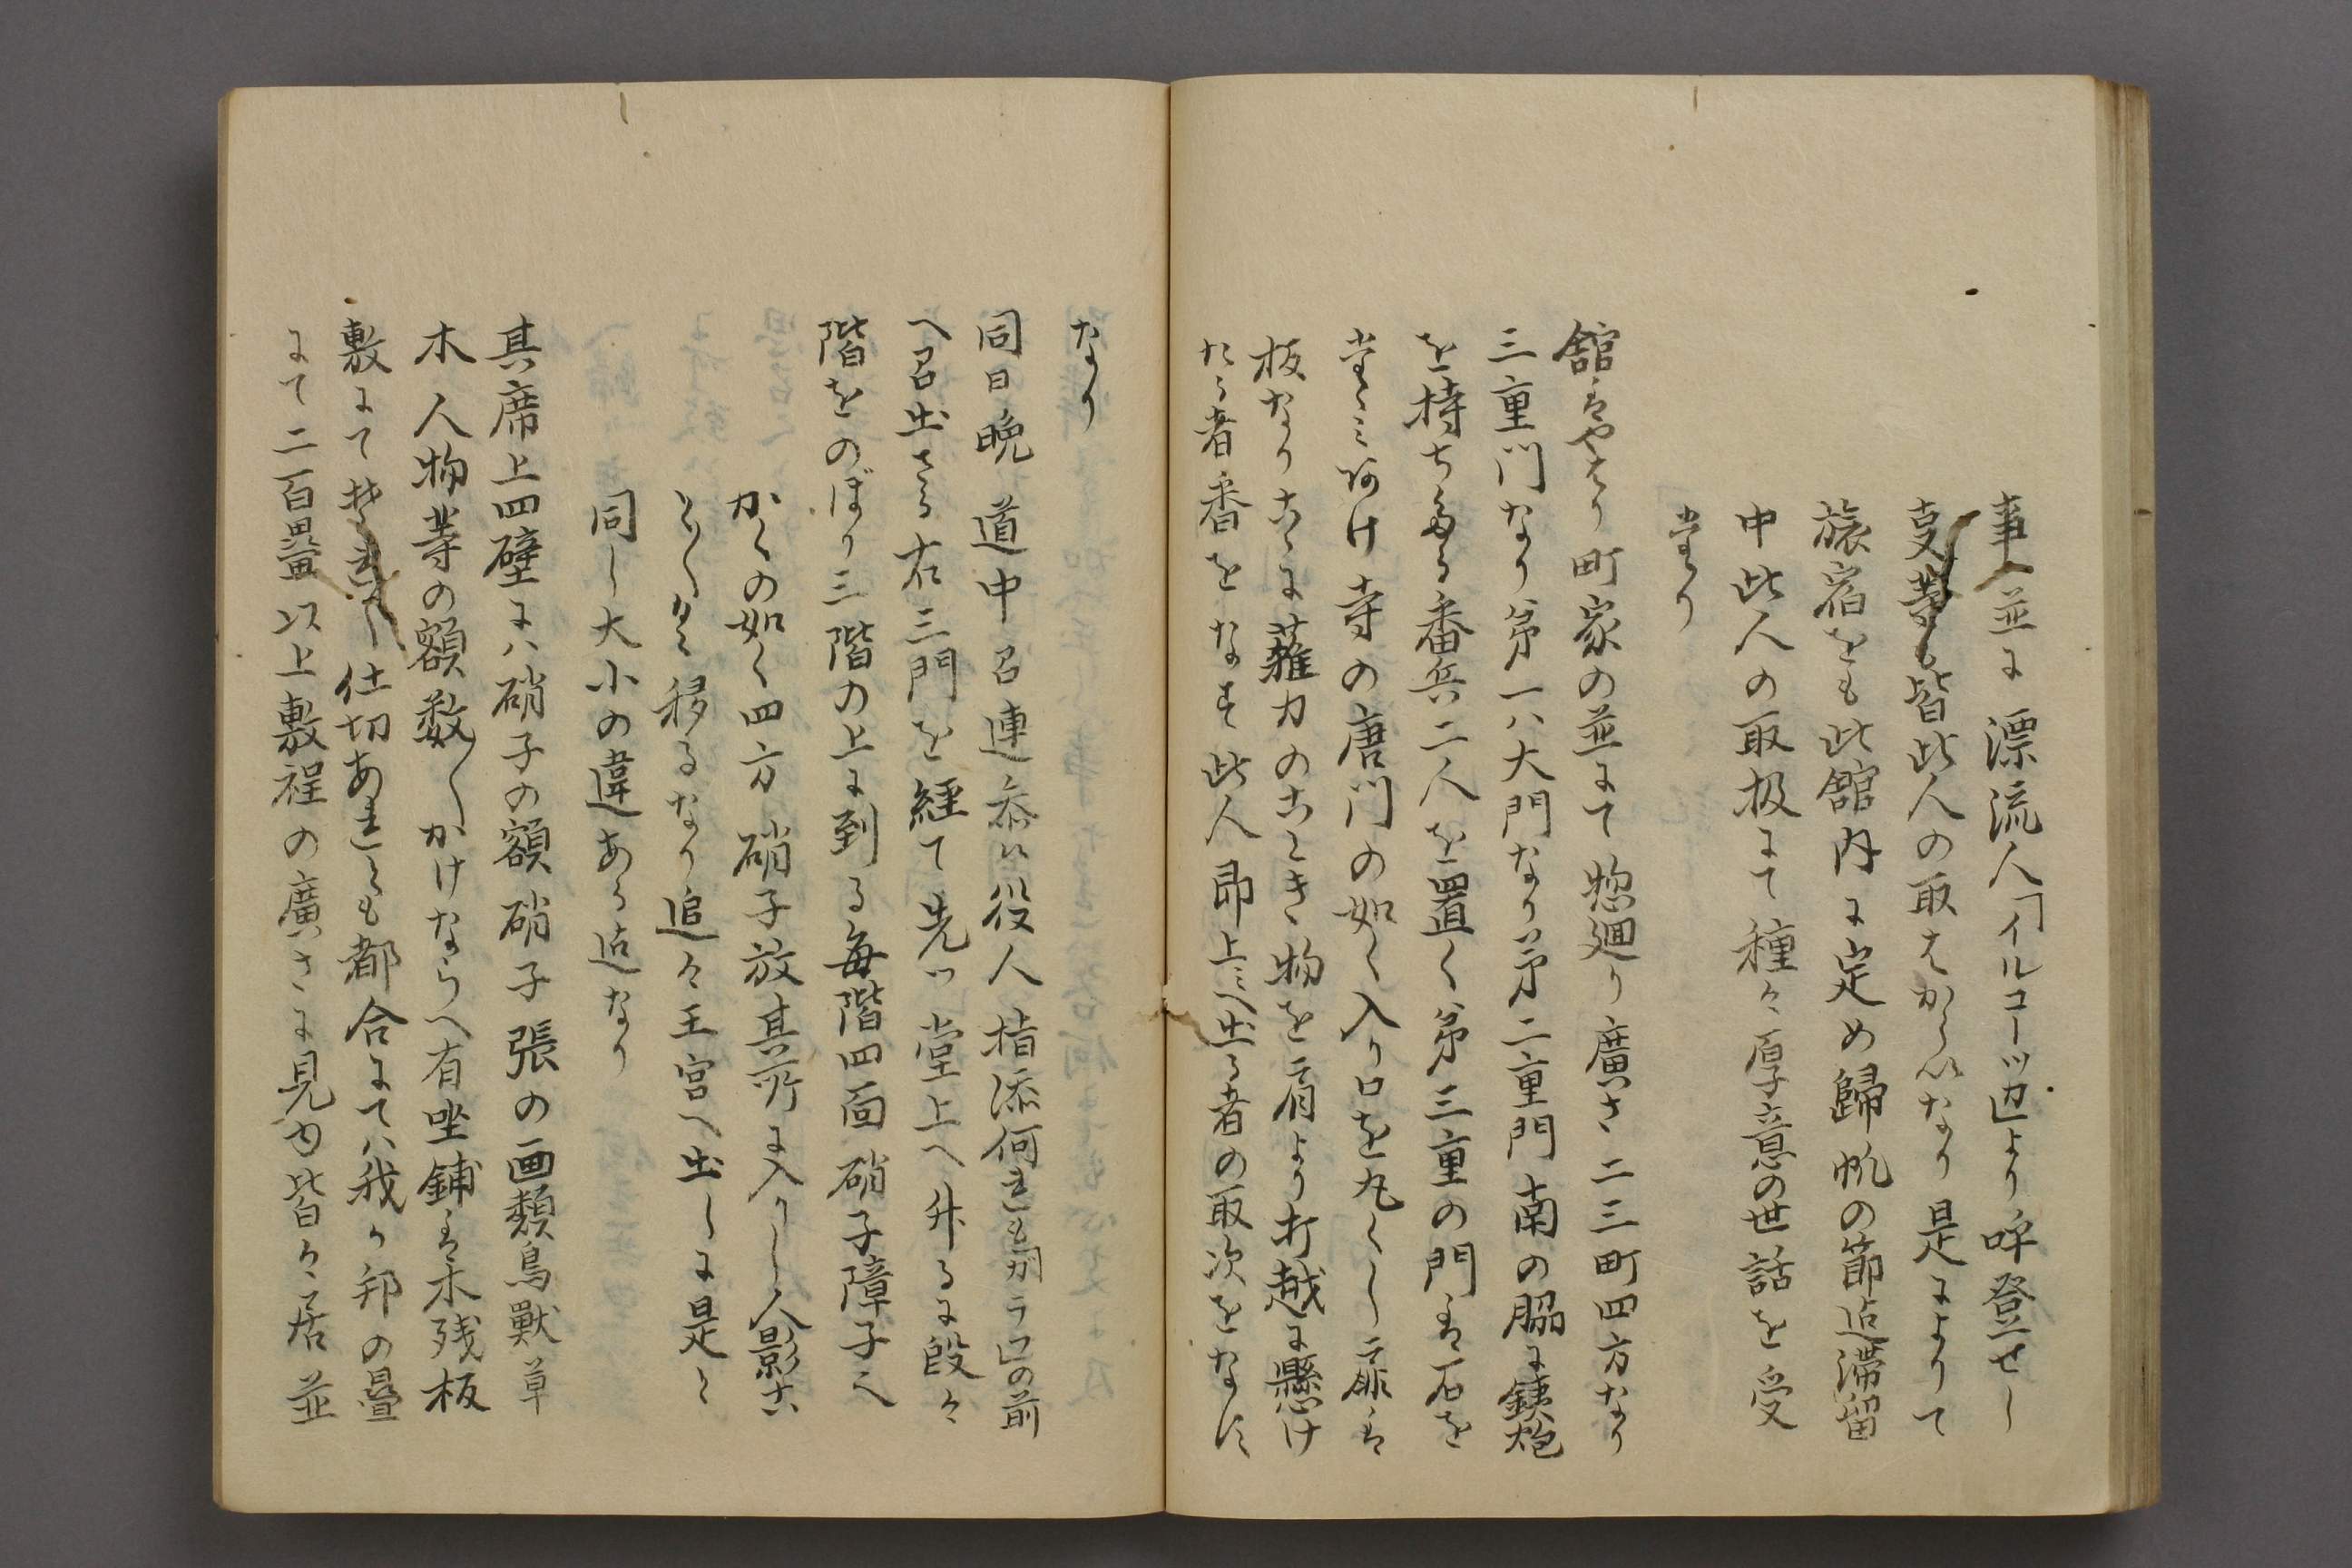 事並に漂流人「イルコーツカ」より呼登せし
叓等も皆此人の取はからひなり是によりて
旅宿をも此舘内に定め歸帆の節迄滞留
中此人の取扱にて種々厚意の世話を受
たり
舘はやはり町家の並にて惣廻り廣さ二三町四方なり
三重門なり第一ハ大門なり第二重門南の脇に鉄炮
を持ちたる番兵二人を置く第三重の門は石を
たゝみあけ寺の唐門の如く入り口を丸くし扉は
板なりこゝに薙刀のことき物を肩より打越に懸け
たる者番をなす此人即上ミへ出る者の取次をなす
なり
同日晩道中召連参候役人指添何れも「ガラフ」の前
へ召出さる右三門を経て先ツ堂上へ升るに段々
階をのぼり三階の上に到る毎階四面硝子障子也
かくの如く四方硝子故其所に入りし人影こ
とく移るなり追々王宮へ出しに是と
同し大小の違ある迄なり
其席上四壁にハ硝子の額硝子張の画類鳥獣草
木人物等の額数〱かけならへ有坐鋪は木残板
敷にて仕切あれとも都合にてハ我か邦の疊
にて二百疊以上敷程の廣さに見ゆ皆々居並